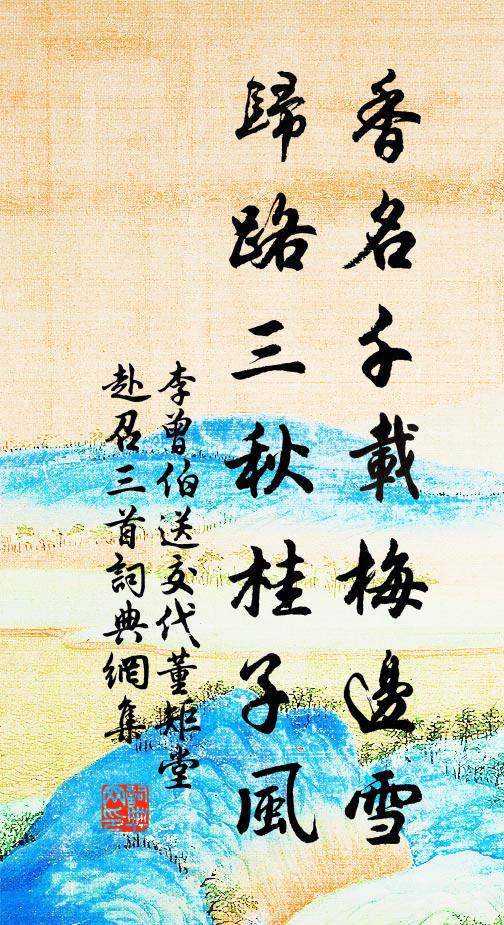 香名千載梅邊雪
歸路三秋桂子風
李曾伯送交代董矩堂
赴召三首詞典網集